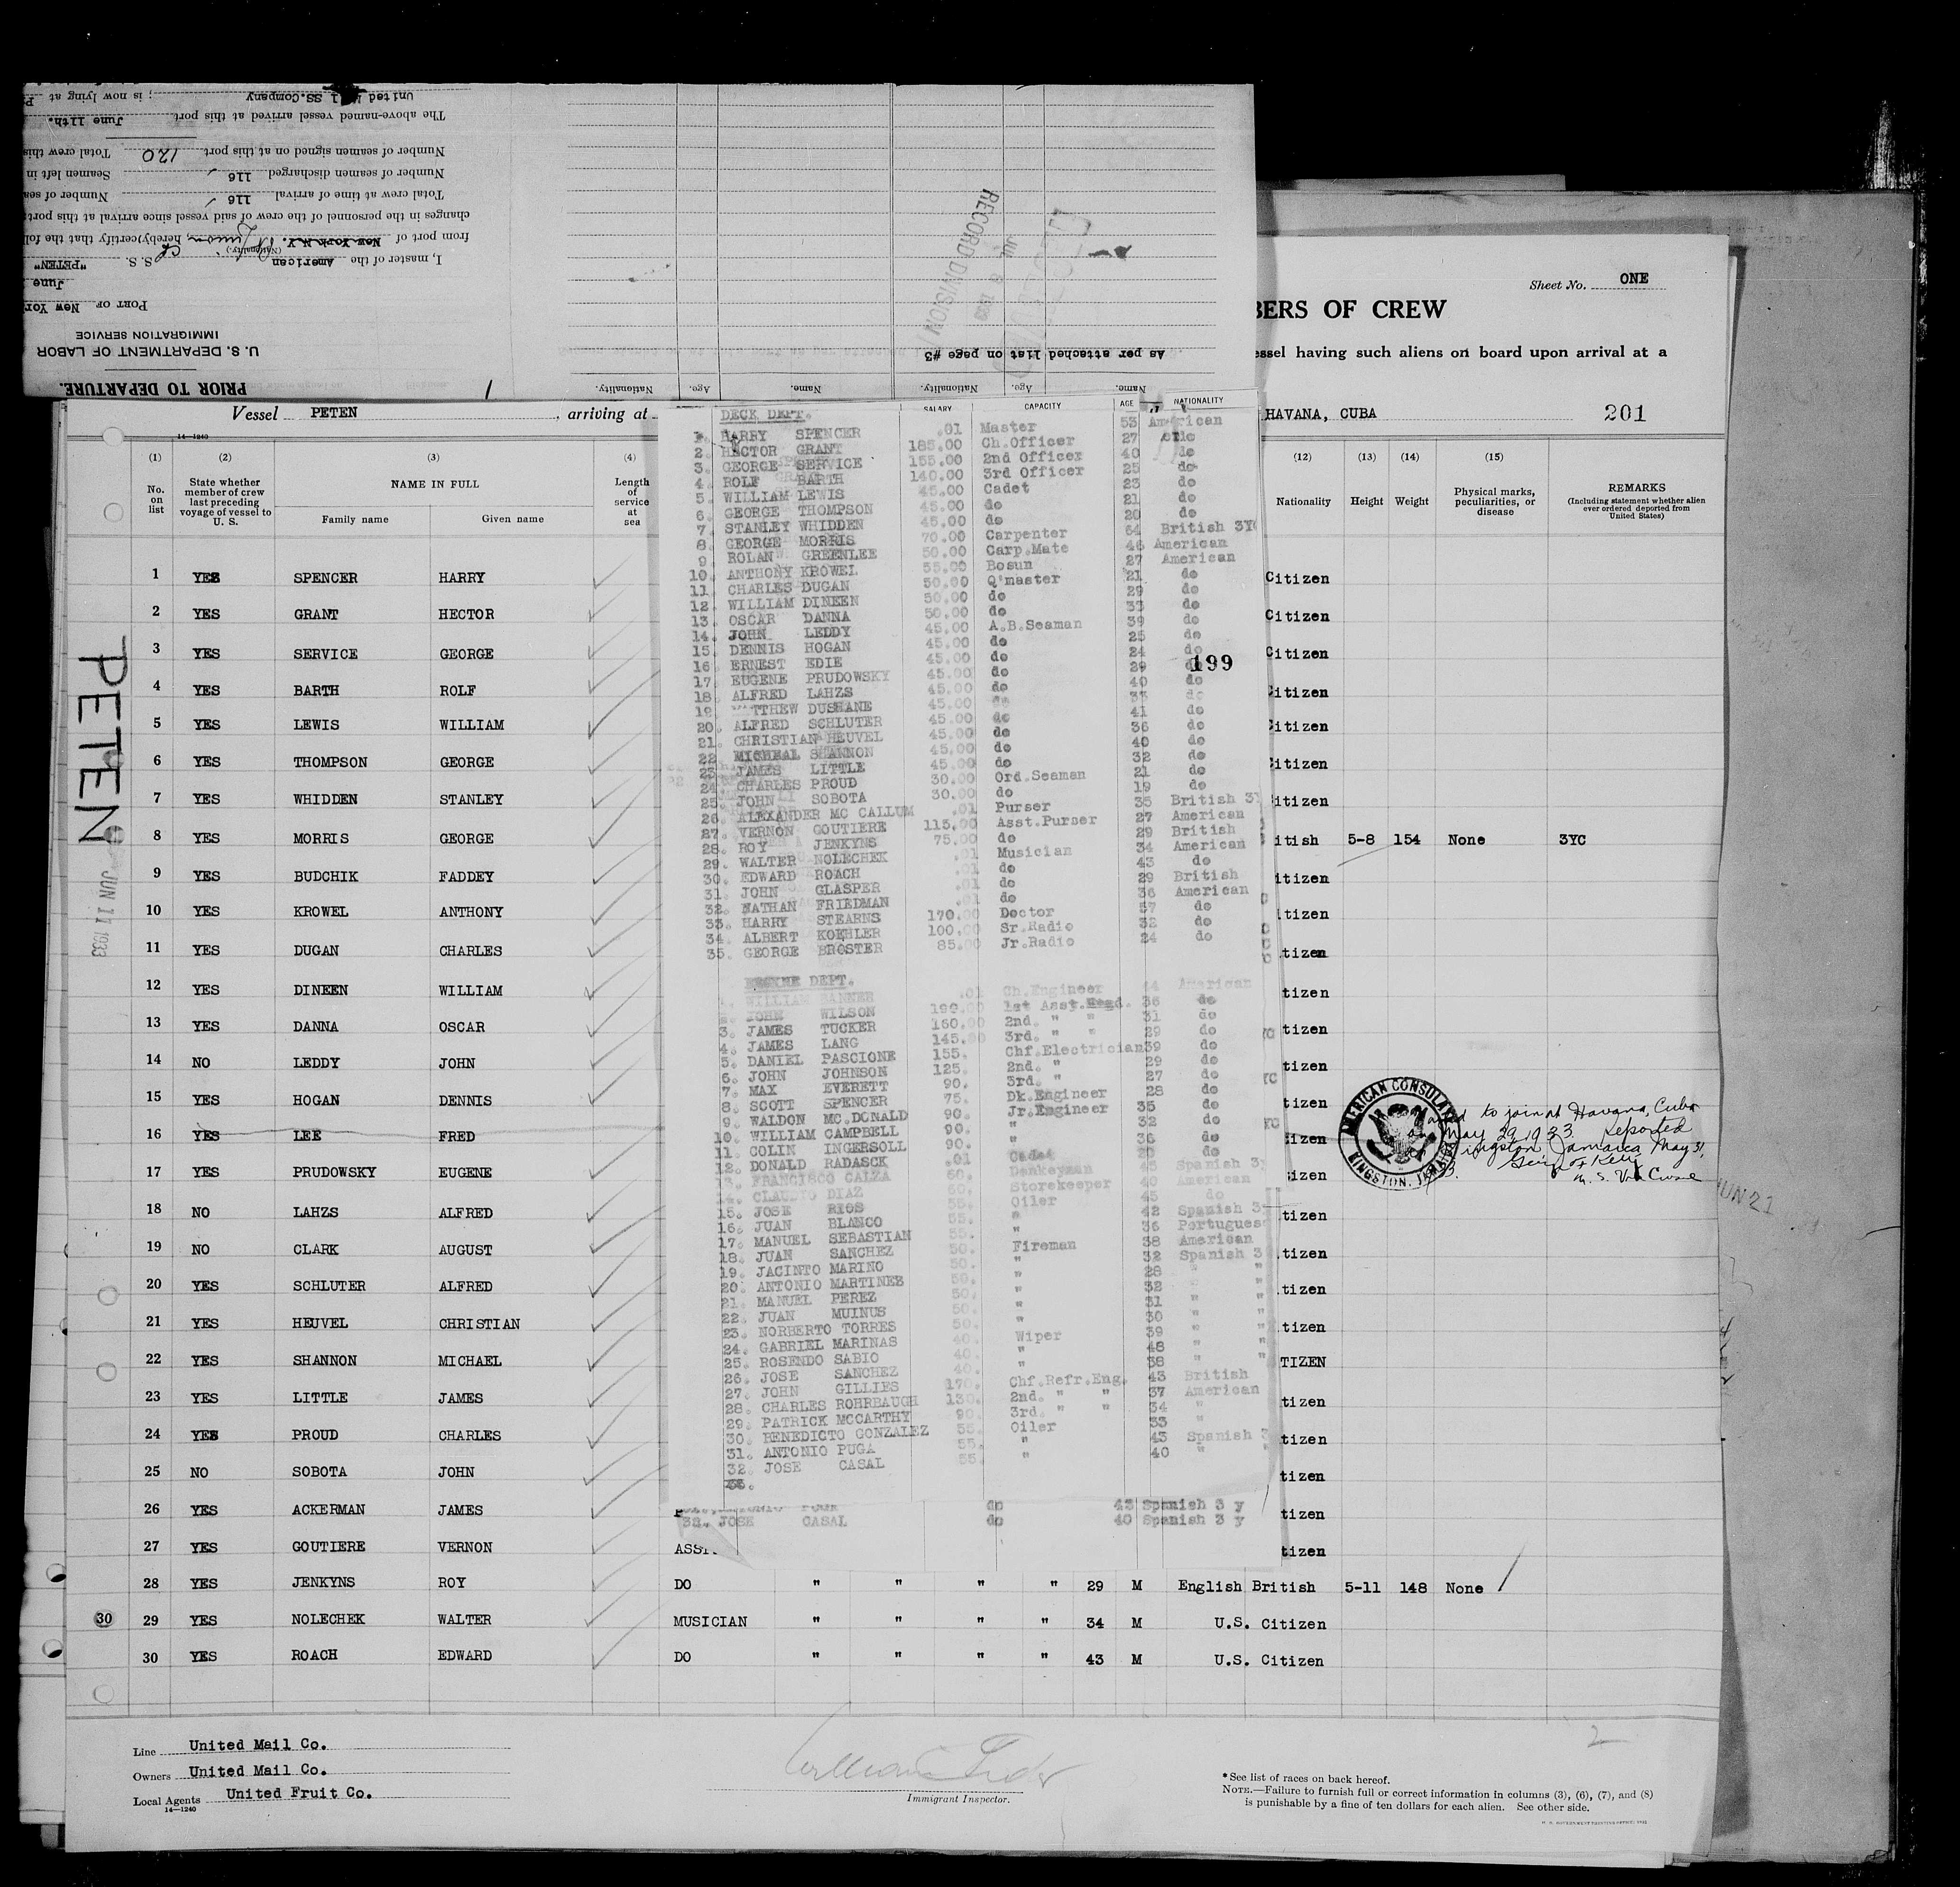 PRIOR TO DEPARTURE.
U. S. DEPARTMENT OF LABOR
IMMIGRATION SERVICE
PORT OF New Yor
June
I, master of the American S. S. "PETEN"
(Nationality.)
from port of New York N.Y. , hereby certify that the fol
changes in the personnel of the crew of said vessel since arrival at this port:
Total crew at time of arrival 116 Number of sea
Number of seamen discharged 116 Seamen left in
Number of seamen signed on at this port 120 Total crew this
The above-named vessel arrived at this port June 11th.
United Mail SS.Company ; is now lying at P
Name. Age. Nationality. Name. Age. Nationality.
As per attached list on page #3
RECORD DIVISION
JUL 6 1933
Sheet No. ONE
BERS OF CREW
essel having such aliens on board upon arrival at a
HAVANA, CUBA 201
Vessel PETEN , arriving at
14—1240
(1) (2) (3) (4) (12) (13) (14) (15)
No. on list
State whether member of crew last preceding voyage of vessel to U. S.
NAME IN FULL
Family name Given name
Length of service at sea
Nationality Height Weight
Physical marks, peculiarities, or disease
REMARKS
(Including statement whether alien ever ordered deported from United States)
1 YES SPENCER HARRY Citizen
2 YES GRANT HECTOR Citizen
3 YES SERVICE GEORGE Citizen
4 YES BARTH ROLF Citizen
5 YES LEWIS WILLIAM Citizen
6 YES THOMPSON GEORGE Citizen
7 YES WHIDDEN STANLEY itizen
8 YES MORRIS GEORGE itish 5-8 154 None 3YC
9 YES BUDCHIK FADDEY itizen
10 YES KROWEL ANTHONY itizen
11 YES DUGAN CHARLES tizen
12 YES DINEEN WILLIAM tizen
13 YES DANNA OSCAR tizen
14 NO LEDDY JOHN tizen
15 YES HOGAN DENNIS tizen
16 YES LEE FRED izen
17 YES PRUDOWSKY EUGENE izen
18 NO LAHZS ALFRED tizen
19 NO CLARK AUGUST tizen
20 YES SCHLUTER ALFRED tizen
21 YES HEUVEL CHRISTIAN tizen
22 YES SHANNON MICHAEL TIZEN
23 YES LITTLE JAMES tizen
24 YES PROUD CHARLES tizen
25 NO SOBOTA JOHN tizen
26 YES ACKERMAN JAMES tizen
27 YES GOUTIERE VERNON tizen
28 YES JENKYNS ROY DO " " " " 29 M English British 5-11 148 None
29 YES NOLECHEK WALTER MUSICIAN " " " " 34 M U.S. Citizen
30 YES ROACH EDWARD DO " " " " 43 M U.S. Citizen
PETEN
JUN 11 1933
30
AMERICAN CONSULATE
KINGSTON, JAMAICA
to join at Havana, Cuba
May 29, 1933. Reported
Kingston, Jamaica May 31,
JUN 21
DECK DEPT. SALARY CAPACITY AGE NATIONALITY
1. HARRY SPENCER .01 Master 53 American
2. HECTOR GRANT 185.00 Ch.Officer 27 do
3. GEORGE SERVICE 155.00 2nd Officer 40 do
4. ROLF BARTH 140.00 3rd Officer 25 do
5. WILLIAM LEWIS 45.00 Cadet 23 do
6. GEORGE THOMPSON 45.00 do 21 do
7. STANLEY WHIDDEN 45.00 do 20 do
8. GEORGE MORRIS 70.00 Carpenter 64 British 3Y
9. ROLAN GREENLEE 50.00 Carp.Mate 46 American
10. ANTHONY KROWEL 55.00 Bosun 27 American
11. CHARLES DUGAN 50.00 Q'master 21 do
12. WILLIAM DINEEN 50.00 do 29 do
13. OSCAR DANNA 50.00 do 33 do
14. JOHN LEDDY 45.00 A.B.Seaman 39 do
15. DENNIS HOGAN 45.00 do 25 do
16 ERNEST EDIE 45.00 do 24 do
17. EUGENE PRUDOWSKY 45.00 do 29 do
199
18. ALFRED LAHZS 45.00 do 40 do
19. MATTHEW DUSHANE 45.00 do 33 do
20. ALFRED SCHLUTER 45.00 do 41 do
21. CHRISTIAN HEUVEL 45.00 do 36 do
22 MICHEAL SHANNON 45.00 do 40 do
23 JAMES LITTLE 45.00 do 32 do
24. CHARLES PROUD 30.00 Ord.Seaman 21 do
25. JOHN SOBOTA 30.00 do 19 do
26. ALEXANDER MC CALLUM .01 Purser 35 British 3
27. VERNON GOUTIERE 115.00 Asst.Purser 27 American
28. ROY JENKYNS 75.00 do 29 British
29. WALTER NOLECHEK .01 Musician 34 American
30. EDWARD ROACH .01 do 43 do
31. JOHN GLASPER .01 do 29 British
32. NATHAN FRIEDMAN .01 do 36 American
33. HARRY STEARNS 170.00 Doctor 57 do
34. ALBERT KOEHLER 100.00 Sr.Radio 32 do
35. GEORGE BROSTER 85.00 Jr.Radio 24 do
ENGINE DEPT.
1. WILLIAM BANNER .01 Ch.Engineer 44 American
2. JOHN WILSON 190.00 1st Asst. 36 do
3. JAMES TUCKER 160.00 2nd. " " 31 do
4. JAMES LANG 145.00 3rd. " " 29 do
5. DANIEL PASCIONE 155. Chf.Electrician 39 do
6. JOHN JOHNSON 125. 2nd. " 29 do
7. MAX EVERETT 90. 3rd. " 27 do
8. SCOTT SPENCER 75. Dk.Engineer 28 do
9. WALDON MC.DONALD 90. Jr.Engineer 35 do
10. WILLIAM CAMPBELL 90. " 32 do
11. COLIN INGERSOLL 90. " 36 do
12. DONALD RADASCK .01 Cadet 20 do
13. FRANCISCO CALZA 60. Donkeyman 45 Spanish 3
14. CLAUDIO DIAZ 60. Storekeeper 40 American
15. JOSE RIOS 55. Oiler 45 do
16. JUAN BLANCO 55. " 42 Spanish 3
17. MANUEL SEBASTIAN 55. " 36 Portugues
18. JUAN SANCHEZ 50. Fireman 38 American
19. JACINTO MARINO 50. " 32 Spanish 3
20. ANTONIO MARTINEZ 50. " 28 " "
21. MANUEL PEREZ 50. " 32 " "
22. JUAN MUINUS 50. " 31 " "
23. NORBERTO TORRES 50. " 30 " "
24. GABRIEL MARINAS 40. Wiper 39 " "
25. ROSENDO SABIO 40. " 48 " "
26. JOSE SANCHEZ 40. " 38 " "
27. JOHN GILLIES 170. Chf.Refr.Eng. 43 British
28. CHARLES ROHRBAUGH 130. 2nd. " " 37 American
29. PATRICK MCCARTHY 90. 3rd. " " 34 "
30. BENEDICTO GONZALEZ 55. Oiler 33 "
31. ANTONIO PUGA 55. " 43 Spanish 3
32. JOSE CASAL 55. " 40 " "
33.
do 43 Spanish 3 y
32. JOSE CASAL do 40 Spanish 3 y
Line United Mail Co.
Owners United Mail Co.
Local Agents United Fruit Co.
14—1240
Immigrant Inspector.
2
* See list of races on back hereof.
NOTE.—Failure to furnish full or correct information in columns (3), (6), (7), and (8)
is punishable by a fine of ten dollars for each alien. See other side.